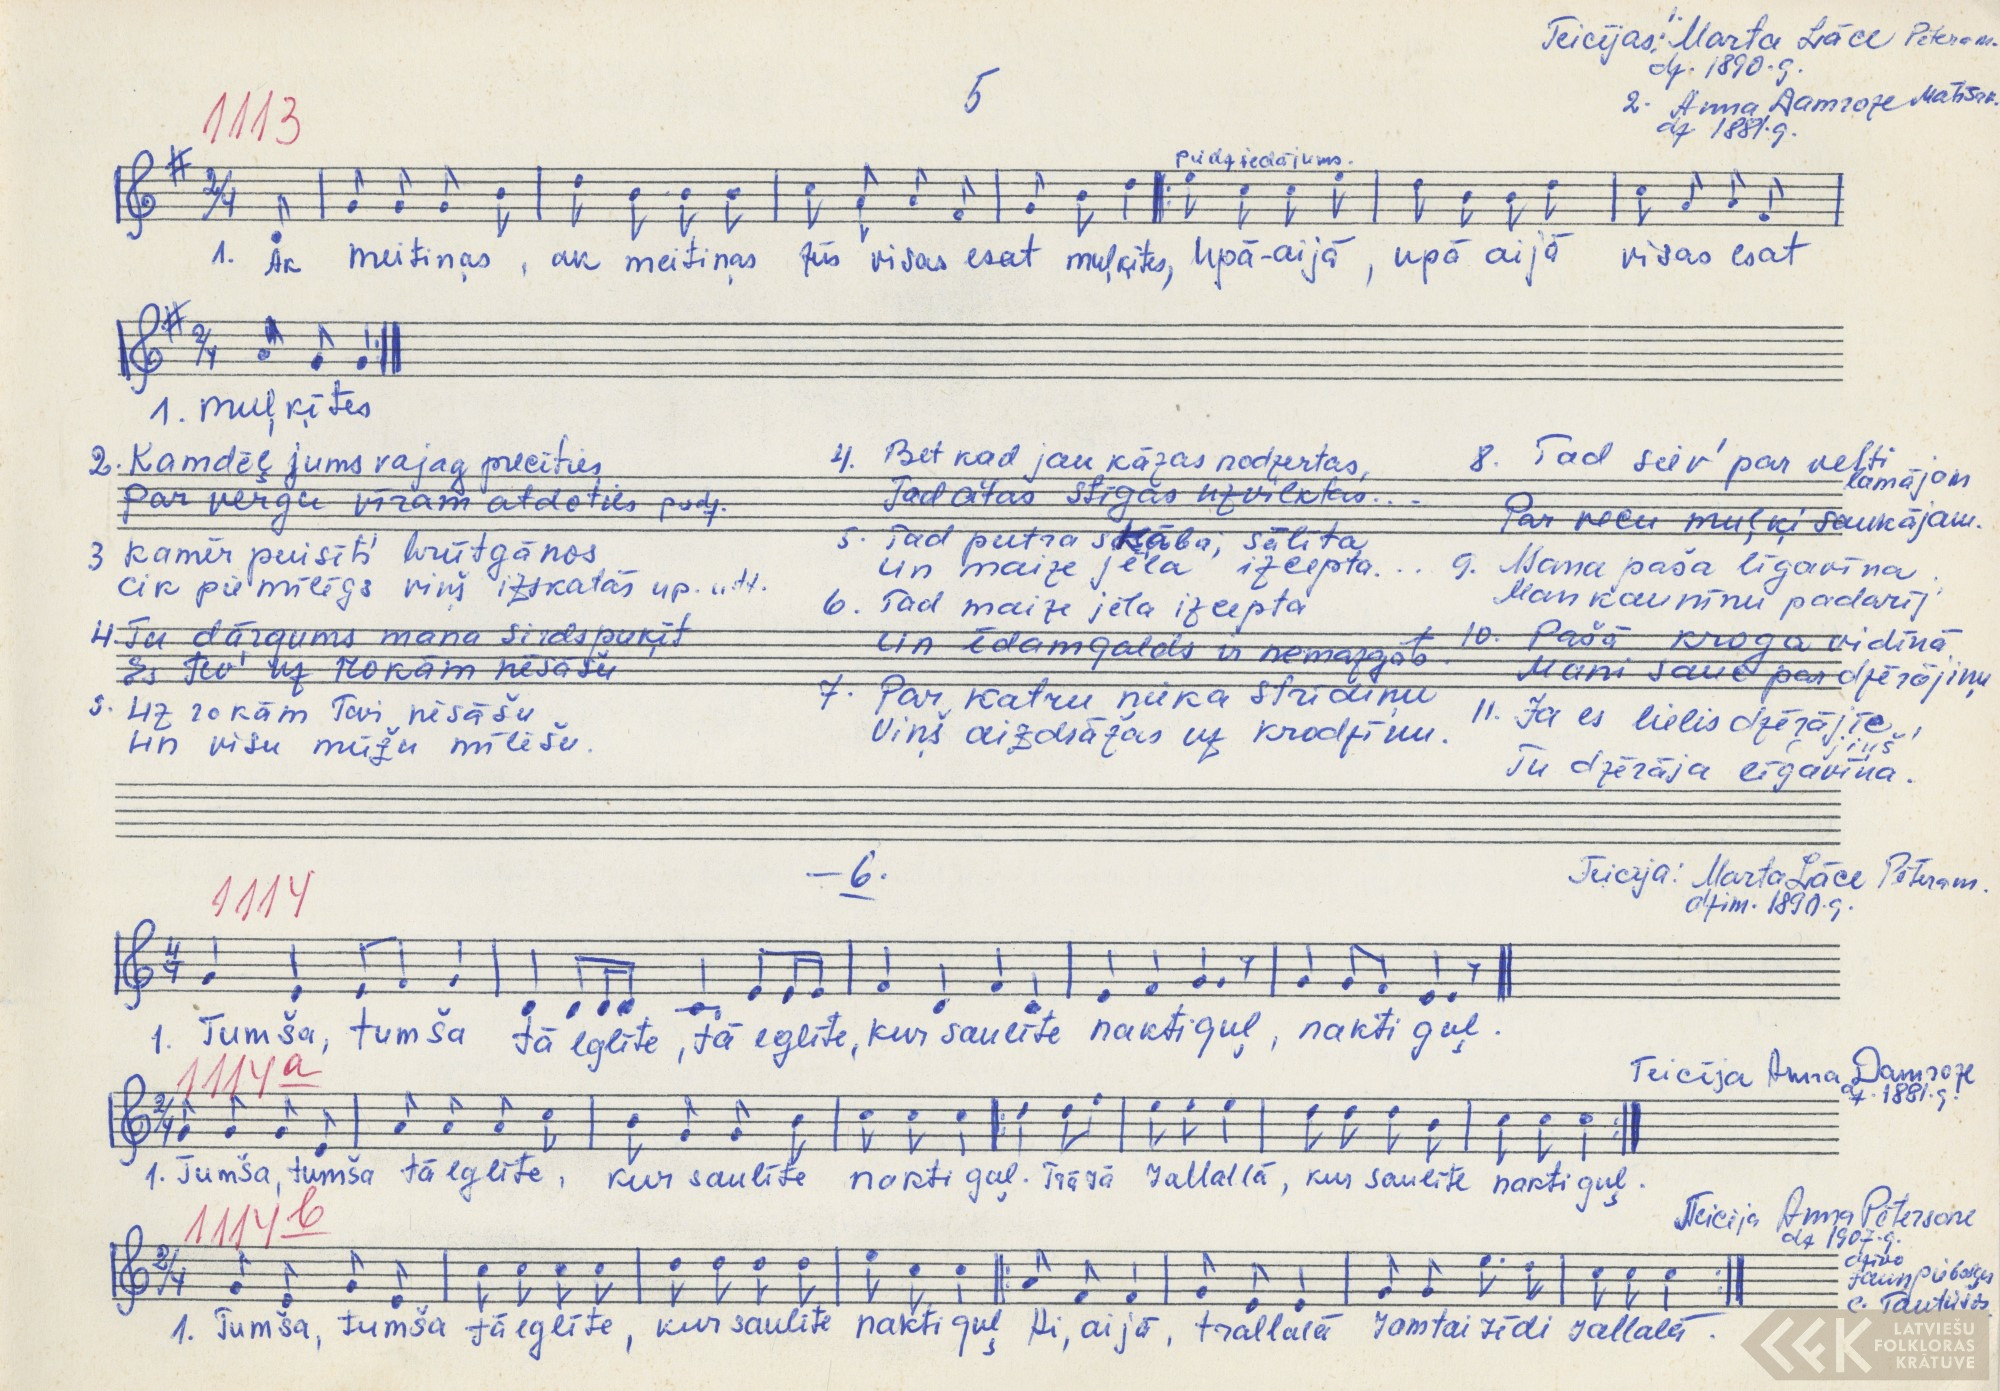 Teicējas: 1. Marta Lāce Pēteram.
dz. 1890.g.
2. Anna Damroze Matīšak.
dz 1881.g.
5
1113
piedziedājums.
1. Ak meitiņas, ak meitiņas jūs visas esat muļķītes, upā-aijā, upā aijā visas esat
1. muļķītes
2. Kamdēļ jums vajag precēties
Par vergu vīram atdoties pedz.
3 Kamēr puisīt' brūtgānos
Cik piemīlīgs viņš izskatās up. utt.
4. Tu dārgums mana sirdspuķīt
Es tev' uz rokām nēsāšu
5. Uz rokām Tevi nēsāšu
Un visu mūžu mīlēšu.
4. Bet kad jau kāzas nodzertas,
Tad citas stīgas uzvilktas...
5. Tad putra skāba, sālīta
Un maize jēla izcepta...
6. Tad maize jēla izcepta
Un ēdamgalds ir nemazgāts
7. Par katru nieka strīdiņu
Viņš aizdrāžas uz krodziņu.
8. Tad siev' par velti lamājam
Par vecu muļķi saukājam.
9. Mana paša līgaviņa
Man kauniņu padarīj'
10. Pašā kroga vidiņā
Mani sauc par dzērājiņu
11. Ja es lielis dzērājie,
jiņš
Tu dzērāja līgaviņa.
- 6.
Teicēja: Marta Lāce Pēteram.
dzim. 1890.g.
1114
1. Tumša, tumša tā eglīte, tā eglīte, kur saulīte nakti guļ, nakti guļ.
Teicēja Anna Damroze
dz. 1881.g.
1114 a
1. Tumša, tumša tā eglīte, kur saulīte nakti guļ. Trājā rallallā, kur saulīte nakti guļ.
Teicēja Anna Pētersone
dz 1907.g.
dzīvo
Jaunpiebalgas
c.
1114 b
1. Tumša, tumša tā eglīte, kur saulīte nakti guļ Ai, aijā, trallalā ramtai rīdi rallalā.
LATVIEŠU
FOLKLORAS
KRĀTUVE